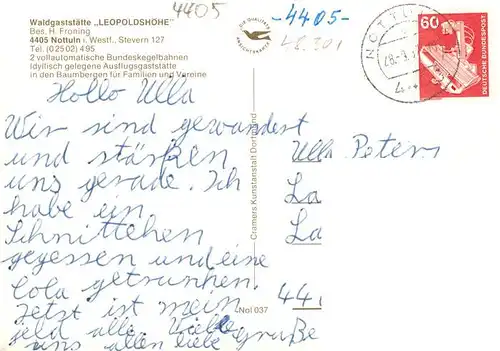 4405
-4405-
48.301
Waldgaststätte „LEOPOLDSHÖHE"
Bes. H. Froning
4405 Nottuln i. Westf., Stevern 127
Tel. (02502) 495
2 vollautomatische Bundeskegelbahnen
Idyllisch gelegene Ausflugsgaststätte
in den Baumbergen für Familien und Vereine
DIE QUALITÄTS
ANSICHTSKARTE
NOTTULN
60
DEUTSCHE BUNDESPOST
Hallo Ulla
Wir sind gewandert
und stärken
uns gerade. Ich
habe ein
Schnittchen
gegessen und eine
Cola getrunken.
Jetzt ist mein
geld alle. Viele
grüße
uns allen liebe
Cramers Kunstanstalt Dortmund
Nol 037
Ulla Peters
La
La
44